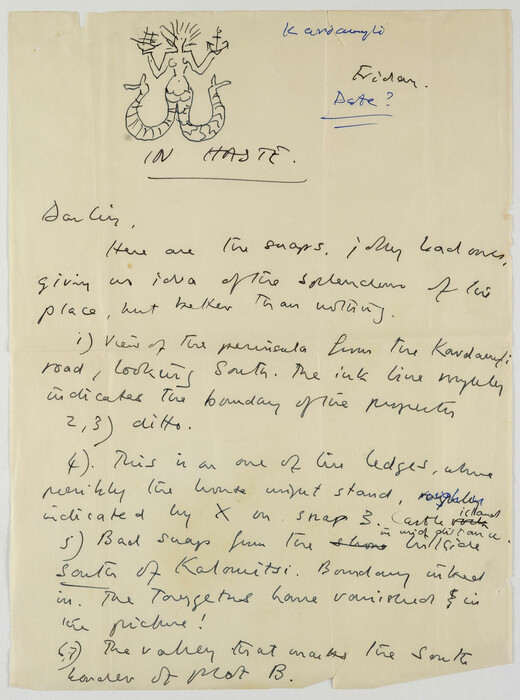 Kardamyli
Friday.
Date?
IN HASTE.
Darling,
Here are the snaps, jolly bad ones,
giving no idea of the splendour of the
place, but better than nothing.
1) View of the peninsula from the Kardamyli
road, looking South. The ink line roughly
indicates the boundary of the property
2,3) ditto.
4). This is on one of the ledges, where
possibly the house might stand, roughly
indicated by X on snap 3. (with island
in mid distance.
5) Bad snaps from the hillside
South of Kalamitsi. Boundary inked
in. The Taygetus have vanished in
the picture!
6,7) The valley that marks the South
border of plot B.